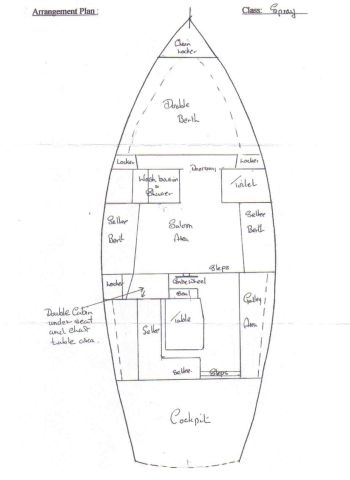 Arrangement Plan :
Class: Spray
Chain
Locker
Double
Berth
Locker
Doorway
Locker
Wash basin
&
Shower
Toilet
Settee
Berth
Saloon
Area
Settee
Berth
Steps
Locker
Wheel
Seat
Galley
Area
Double Cabin
under seat
and chart
table area.
Settee
Table
Settee
Steps
Cockpit